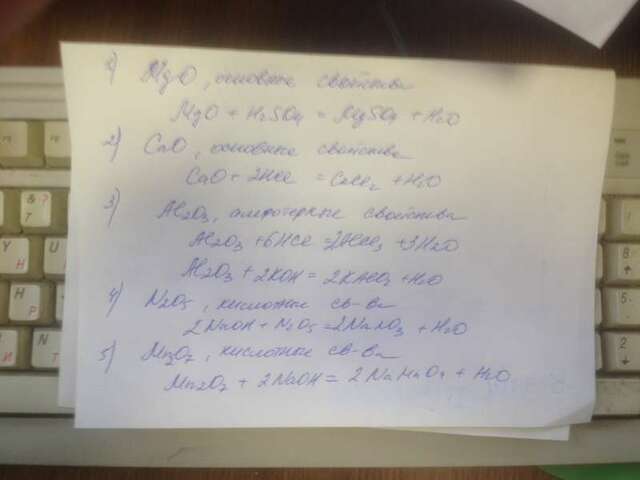 1) MgO, основные свойства
MgO + H2SO4 = MgSO4 + H2O
2) CaO, основные свойства
CaO + 2HCl = CaCl2 + H2O
3) Al2O3, амфотерные свойства
Al2O3 + 6HCl = 2AlCl3 + 3H2O
Al2O3 + 2KOH = 2KAlO2 + H2O
4) N2O5, кислотные св-ва
2NaOH + N2O5 = 2NaNO3 + H2O
5) Mn2O7, кислотные св-ва
Mn2O7 + 2NaOH = 2NaMnO4 + H2O